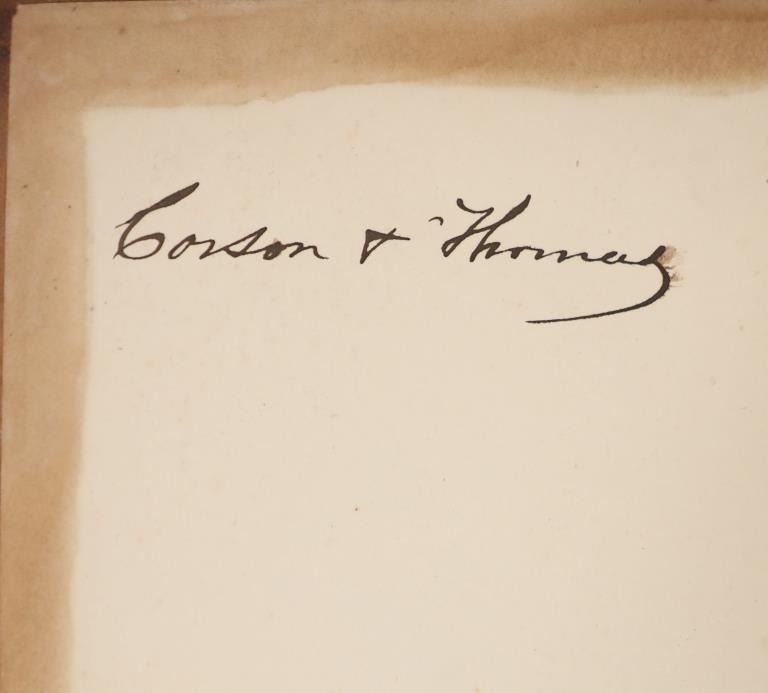 Corson & Thomas